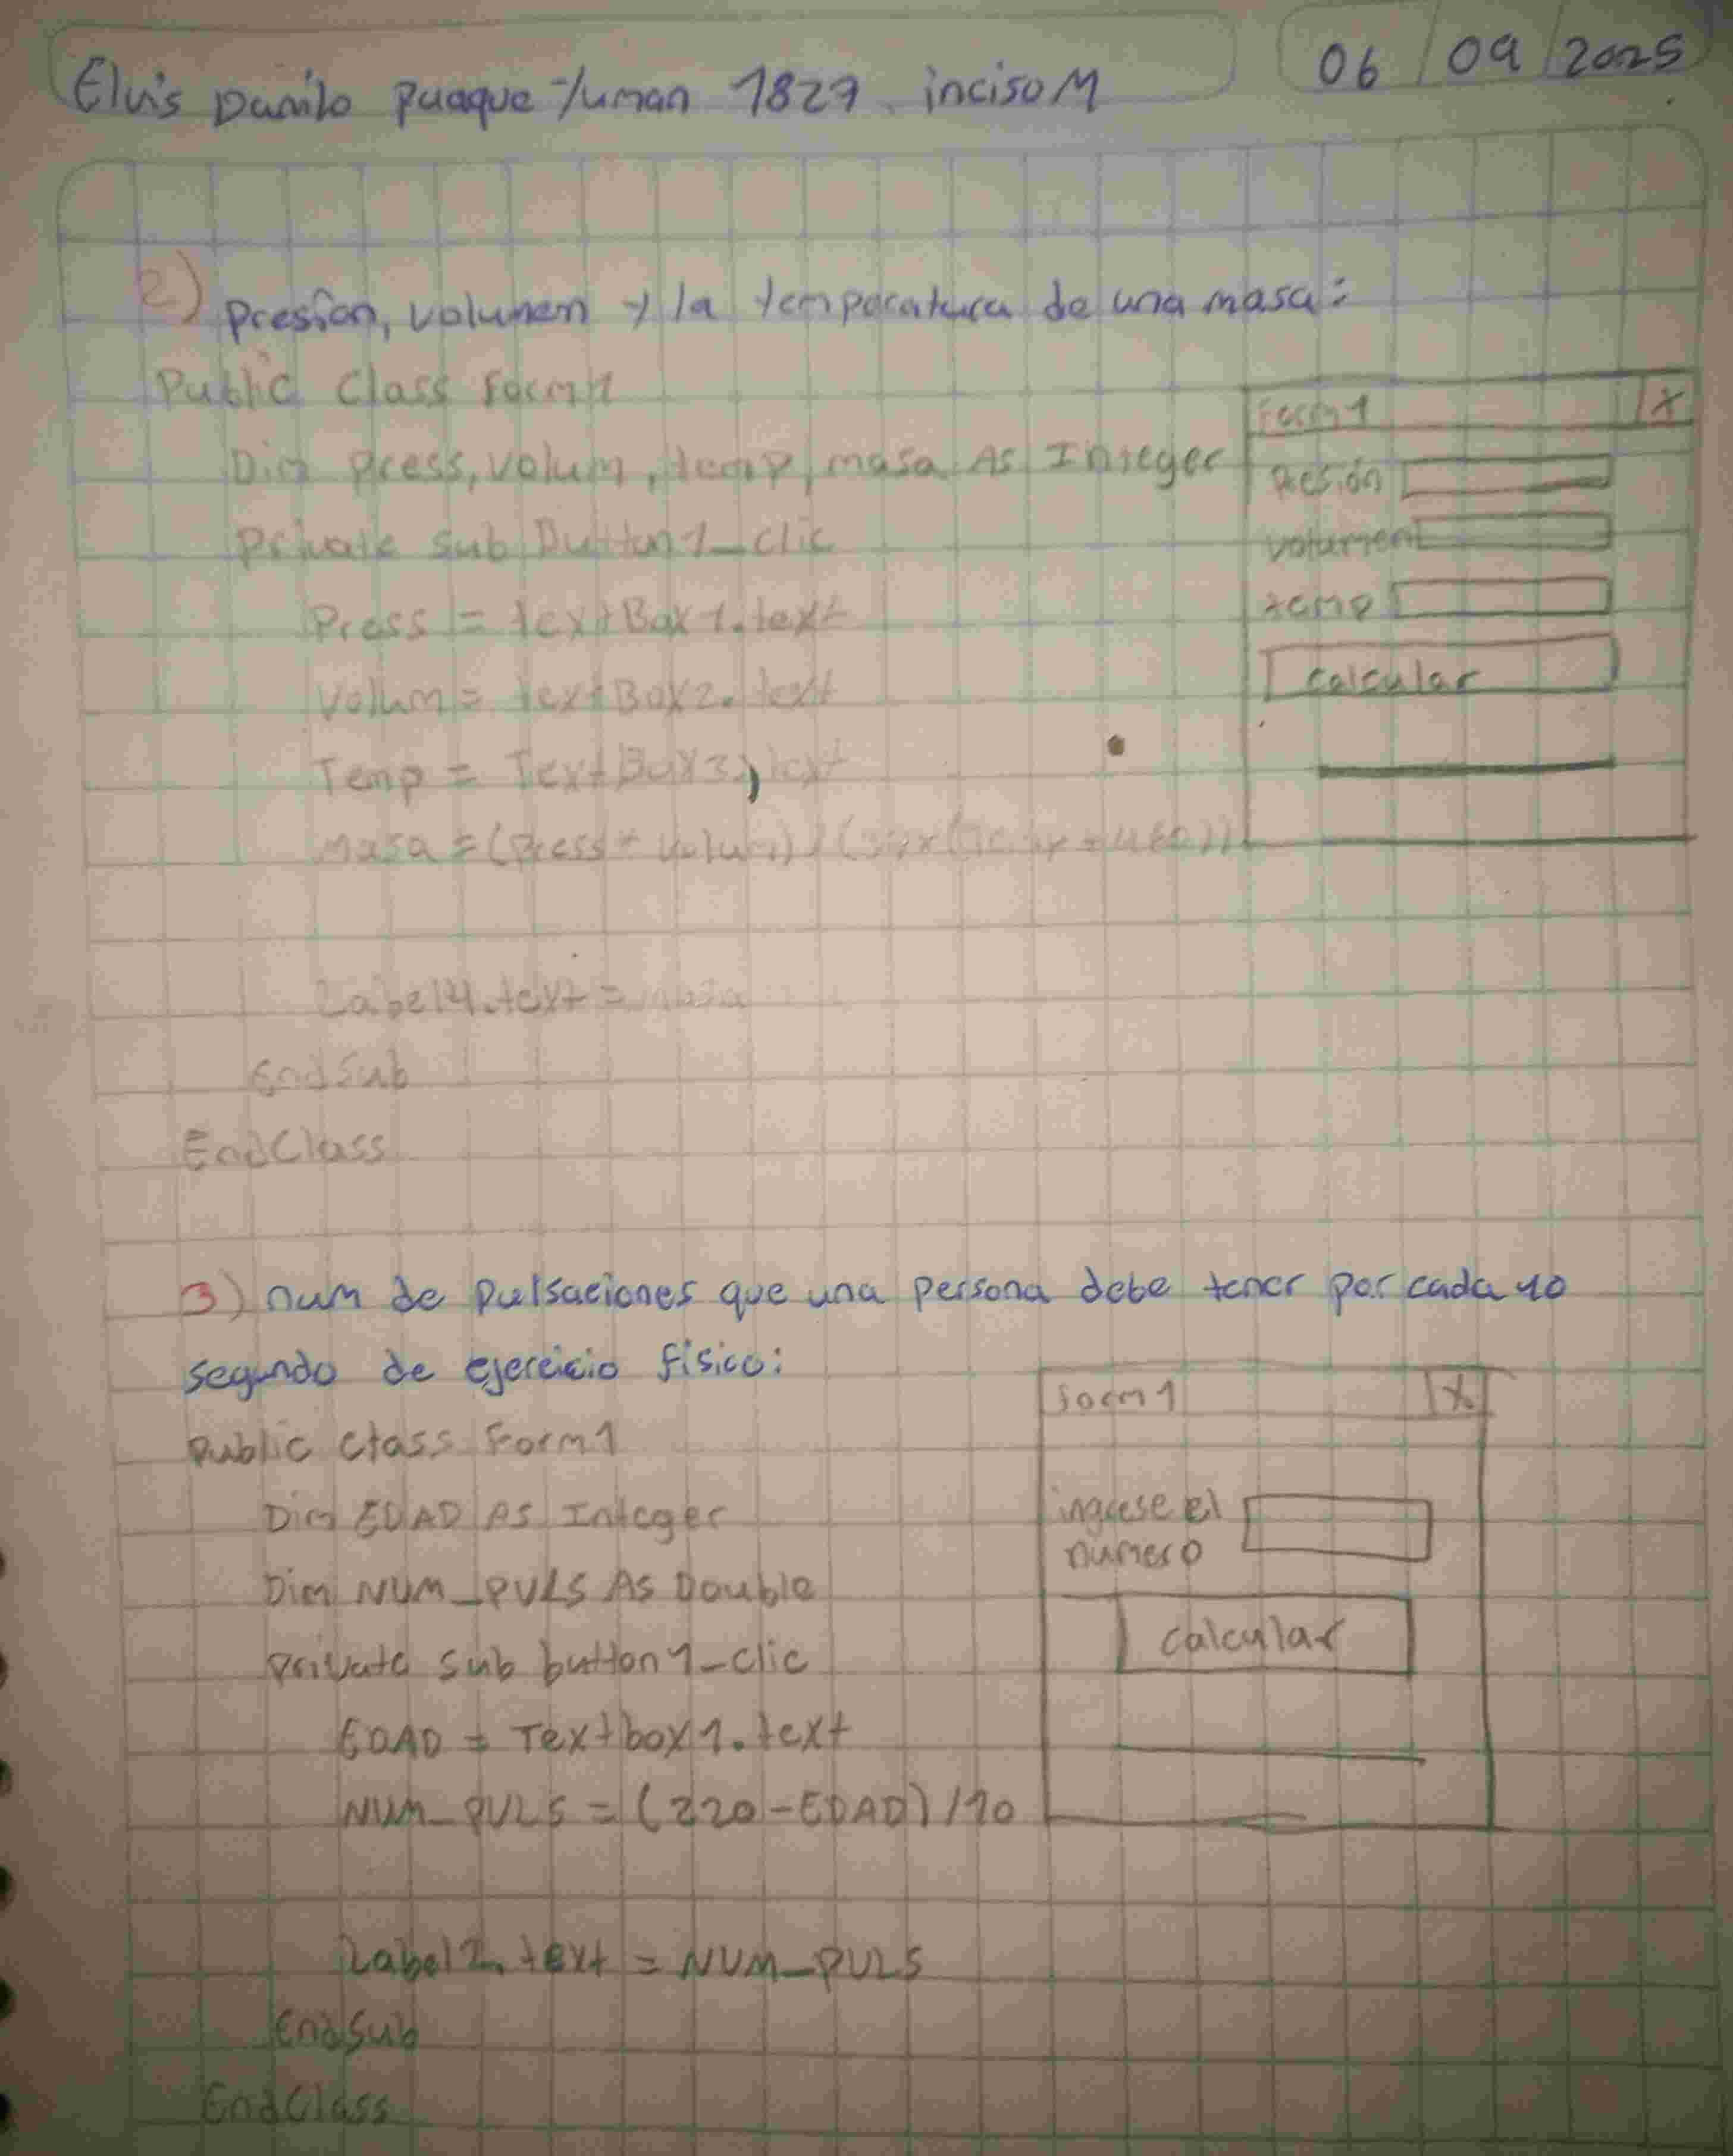 Elvis Danilo puaque Yuman 1827 inciso M
06/09/2025
2) presion, volumen y la temperatura de una masa:
Public Class Form1
Dim press, volum, temp, masa As Integer
Private sub Button1_clic
Press = textBox1.text
Volum = textBox2.text
Temp = TextBox3.text
masa = (Press * volum) /
Label4.text = masa
EndSub
EndClass
Form1 X
Presión
volumen
temp
calcular
3) num de pulsaciones que una persona debe tener por cada 10
segundo de ejercicio físico:
Public class Form1
Dim EDAD As Integer
Dim NUM_PULS As Double
private sub button1_clic
EDAD = Textbox1.text
NUM_PULS = (220-EDAD)/10
Label2.text = NUM_PULS
EndSub
EndClass
Form1 X
ingrese el
numero
calcular